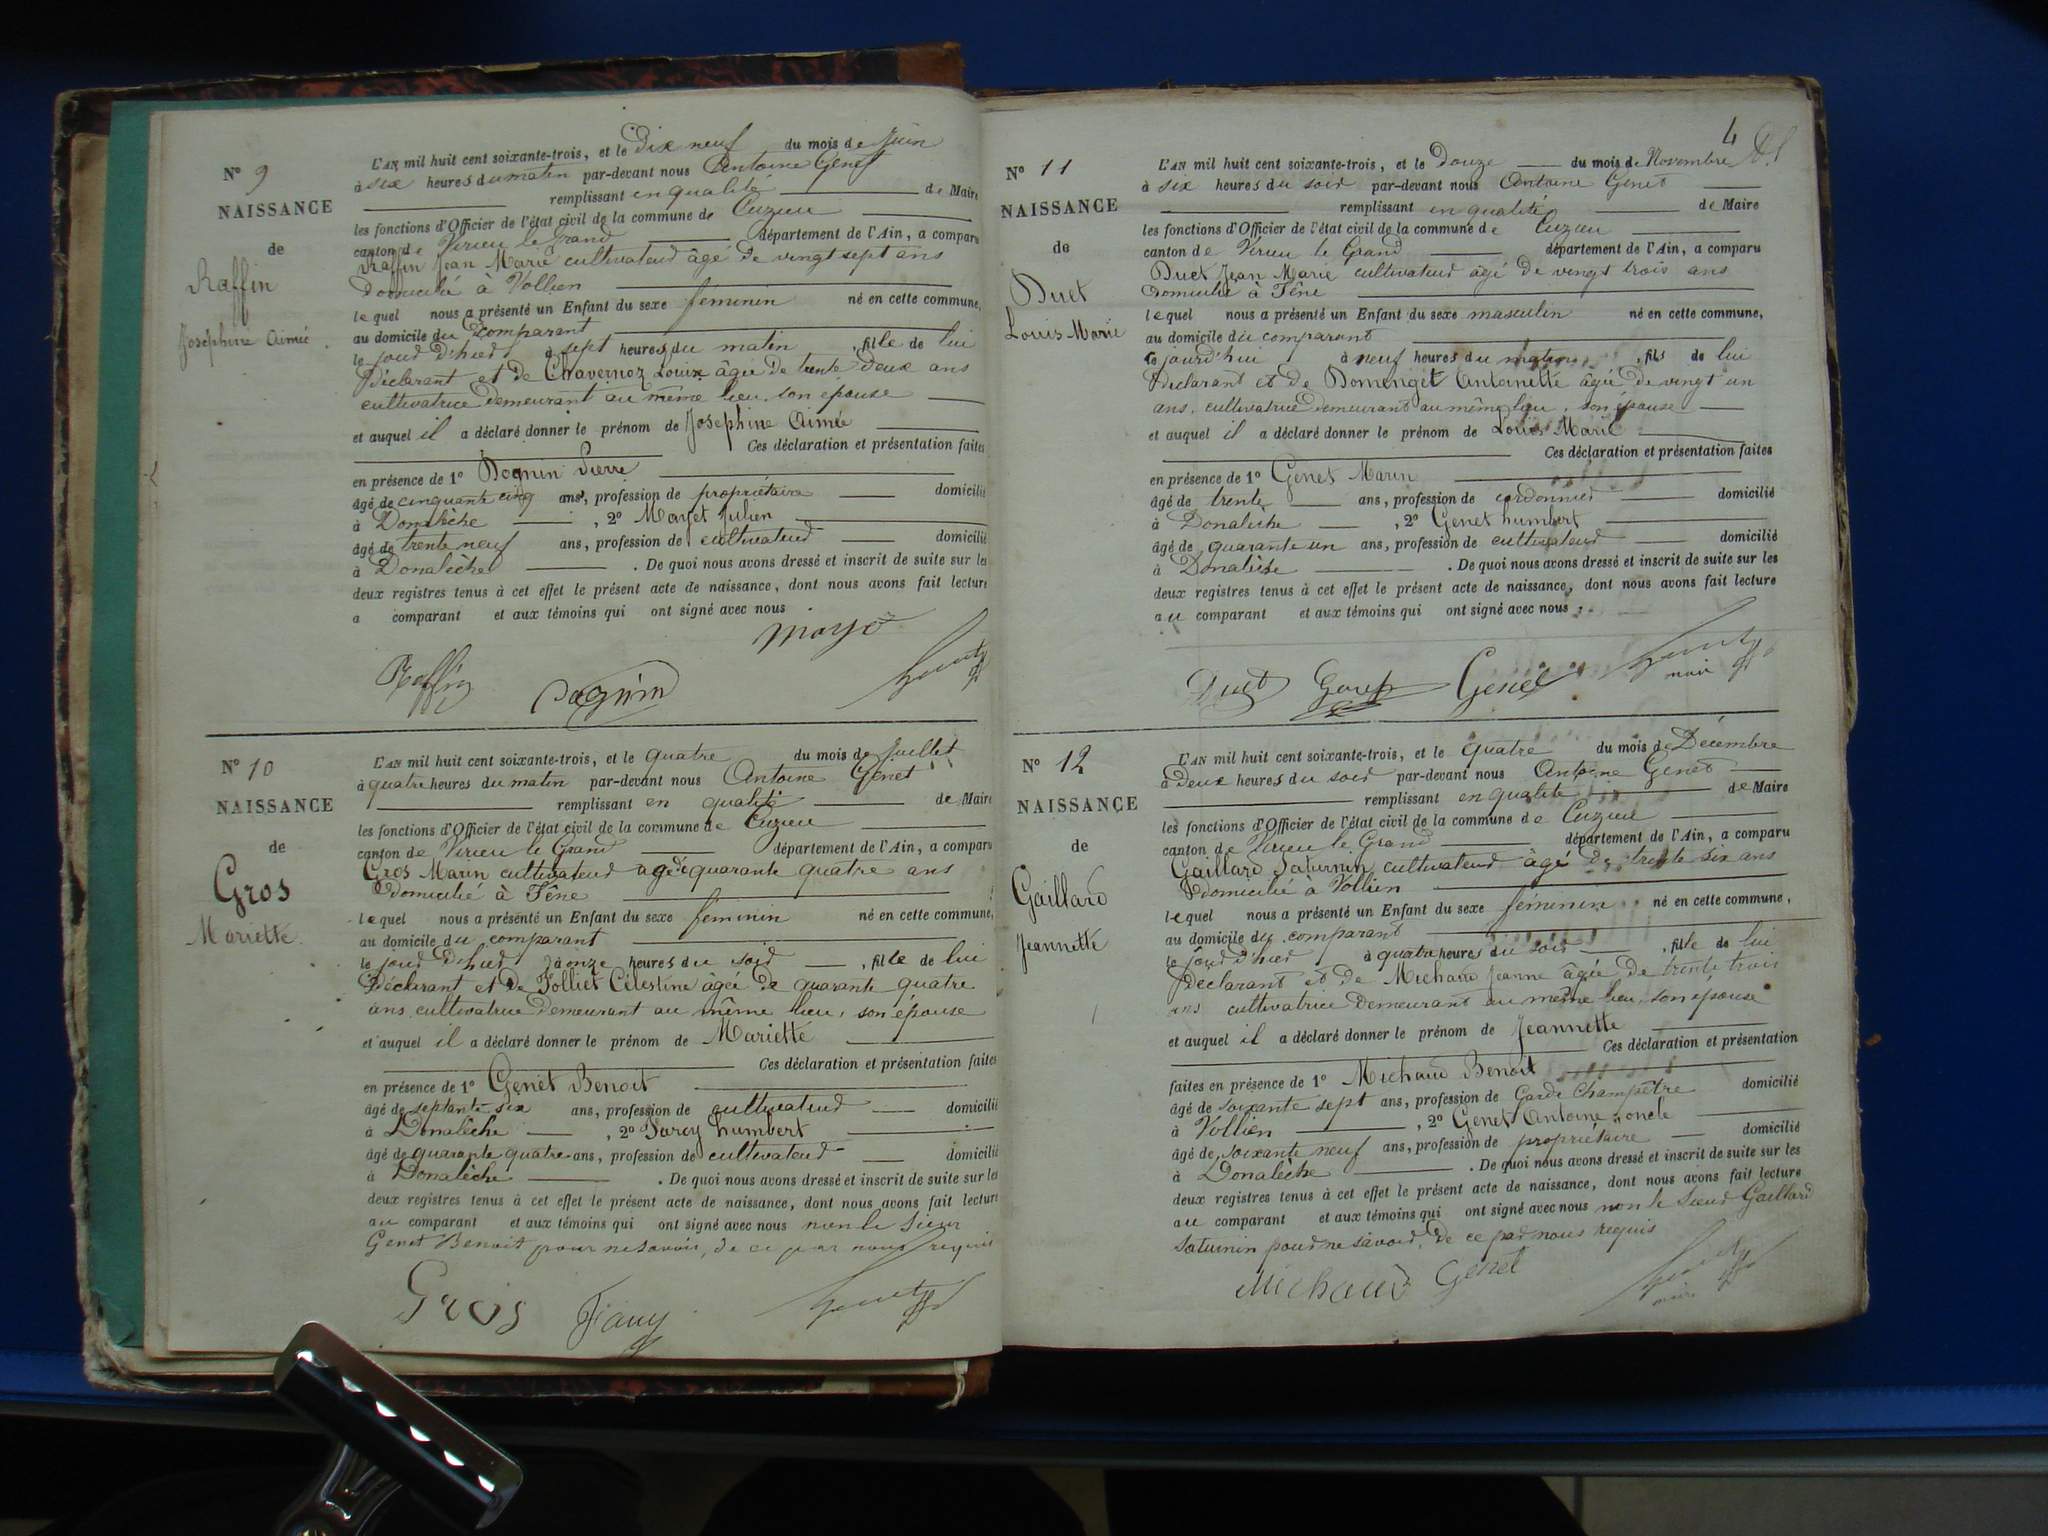 N° 9
NAISSANCE
de
Raffin
Josephine Aimée
L'AN mil huit cent soixante-trois, et le Dix neuf du mois de Juin
à six heures du matin par-devant nous Antoine Genet
remplissant en qualité de Maire
les fonctions d'Officier de l'état civil de la commune de Cuzieu
canton de Virieu le Grand département de l'Ain, a comparu
Raffin Jean Marie cultivateur âgé de vingt sept ans
Domicilié à Vollien
lequel nous a présenté un Enfant du sexe féminin né en cette commune,
au domicile du comparant
le jour d'hier à sept heures du matin, fille de lui
Déclarant et de Chavernoz Louise âgée de trente Deux ans
cultivatrice demeurant au même lieu, son épouse
et auquel il a déclaré donner le prénom de Josephine Aimée
Ces déclaration et présentation faites
en présence de 1° Dognin Pierre
âgé de cinquante cinq ans, profession de propriétaire domicilié
à Donalèche, 2° Mayet Julien
âgé de trente neuf ans, profession de cultivateur domicilié
à Donalèche. De quoi nous avons dressé et inscrit de suite sur les
deux registres tenus à cet effet le présent acte de naissance, dont nous avons fait lecture
a comparant et aux témoins qui ont signé avec nous
Raffin Dognin
N° 10
NAISSANCE
de
Gros
Mariette
L'AN mil huit cent soixante-trois, et le quatre du mois de Juillet
à quatre heures du matin par-devant nous Antoine Genet
remplissant en qualité de Maire
les fonctions d'Officier de l'état civil de la commune de Cuzieu
canton de Virieu le Grand département de l'Ain, a comparu
Gros Marin cultivateur agé de quarante quatre ans
Domicilié à Fêne
lequel nous a présenté un Enfant du sexe féminin né en cette commune,
au domicile du comparant
le jour d'hier à onze heures du soir, fille de lui
Déclarant et de Jolliet Célestine âgée de quarante quatre
ans cultivatrice demeurant au même lieu, son épouse
et auquel il a déclaré donner le prénom de Mariette
Ces déclaration et présentation faites
en présence de 1° Genet Benoit
âgé de septante six ans, profession de cultivateur domicilié
à Donalèche, 2° humbert
âgé de quarante quatre ans, profession de cultivateur domicilié
à Donalèche. De quoi nous avons dressé et inscrit de suite sur les
deux registres tenus à cet effet le présent acte de naissance, dont nous avons fait lecture
au comparant et aux témoins qui ont signé avec nous non le sieur
Genet Benoit pour ne savoir, de ce par nous requis
Gros
4
N° 11
NAISSANCE
de
Duet
Louis Marie
L'AN mil huit cent soixante-trois, et le Douze du mois de Novembre
à six heures du soir par-devant nous Antoine Genet
remplissant en qualité de Maire
les fonctions d'Officier de l'état civil de la commune de Cuzieu
canton de Virieu le Grand département de l'Ain, a comparu
Duet Jean Marie cultivateur âgé de vingt trois ans
Domicilié à Fêne
lequel nous a présenté un Enfant du sexe masculin né en cette commune,
au domicile du comparant
ce jourd'hui à neuf heures du matin, fils de lui
Déclarant et de Domenget Antoinette âgée de vingt un
ans, cultivatrice demeurant au même lieu, son épouse
et auquel il a déclaré donner le prénom de Louis Marie
Ces déclaration et présentation faites
en présence de 1° Genet Marin
âgé de trente ans, profession de cordonnier domicilié
à Donalèche, 2° Genet humbert
âgé de quarante un ans, profession de cultivateur domicilié
à Donalèche. De quoi nous avons dressé et inscrit de suite sur les
deux registres tenus à cet effet le présent acte de naissance, dont nous avons fait lecture
au comparant et aux témoins qui ont signé avec nous
Duet Genet Genet
N° 12
NAISSANCE
de
Gaillard
Jeannette
L'AN mil huit cent soixante-trois, et le quatre du mois de Décembre
à Deux heures du soir par-devant nous Antoine Genet
remplissant en qualité de Maire
les fonctions d'Officier de l'état civil de la commune de Cuzieu
canton de Virieu le Grand département de l'Ain, a comparu
Gaillard Saturnin cultivateur âgé De trente six ans
Domicilié à Vollien
lequel nous a présenté un Enfant du sexe féminin né en cette commune,
au domicile du comparant
le jour d'hier à quatre heures du soir, fille de lui
Déclarant et de Michaud Jeanne âgée de trente trois
ans cultivatrice Demeurant au même lieu, son épouse
et auquel il a déclaré donner le prénom de Jeannette
Ces déclaration et présentation
faites en présence de 1° Michaud Benoit
âgé de soixante sept ans, profession de Garde Champêtre domicilié
à Vollien, 2° Genet Antoine oncle
âgé de soixante neuf ans, profession de propriétaire domicilié
à Donalèche. De quoi nous avons dressé et inscrit de suite sur les
deux registres tenus à cet effet le présent acte de naissance, dont nous avons fait lecture
au comparant et aux témoins qui ont signé avec nous non le Sieur Gaillard
Saturnin pour ne savoir, de ce par nous requis
Michaud Genet